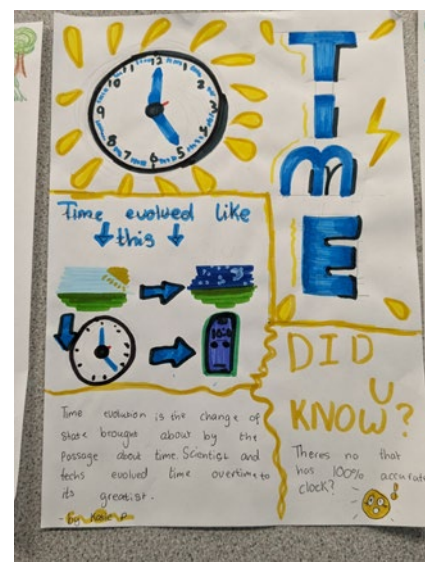 12
11
1
10
2
9
3
8
4
7
5
6
TIME
Time evolved like
this
DID
U
KNOW?
Time evolution is the change of
state brought about by the
Passage about time. Scientist and
techs evolved time overtime to
its greatist.
- By
Theres no that
has 100% accurate
clock?